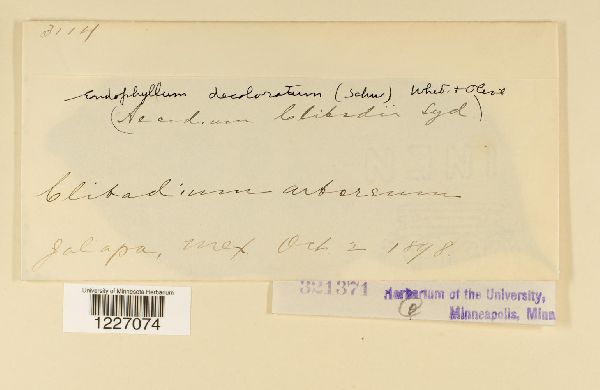 3114
Endophyllum decoloratum (Schw) Whet. + Olive
(Aecidium Clibadii Syd)
Clibadium arboreum
Jalapa, Mex Oct 2 1898.
321371 Herbarium of the University,
Minneapolis, Minn
University of Minnesota Herbarium
1227074